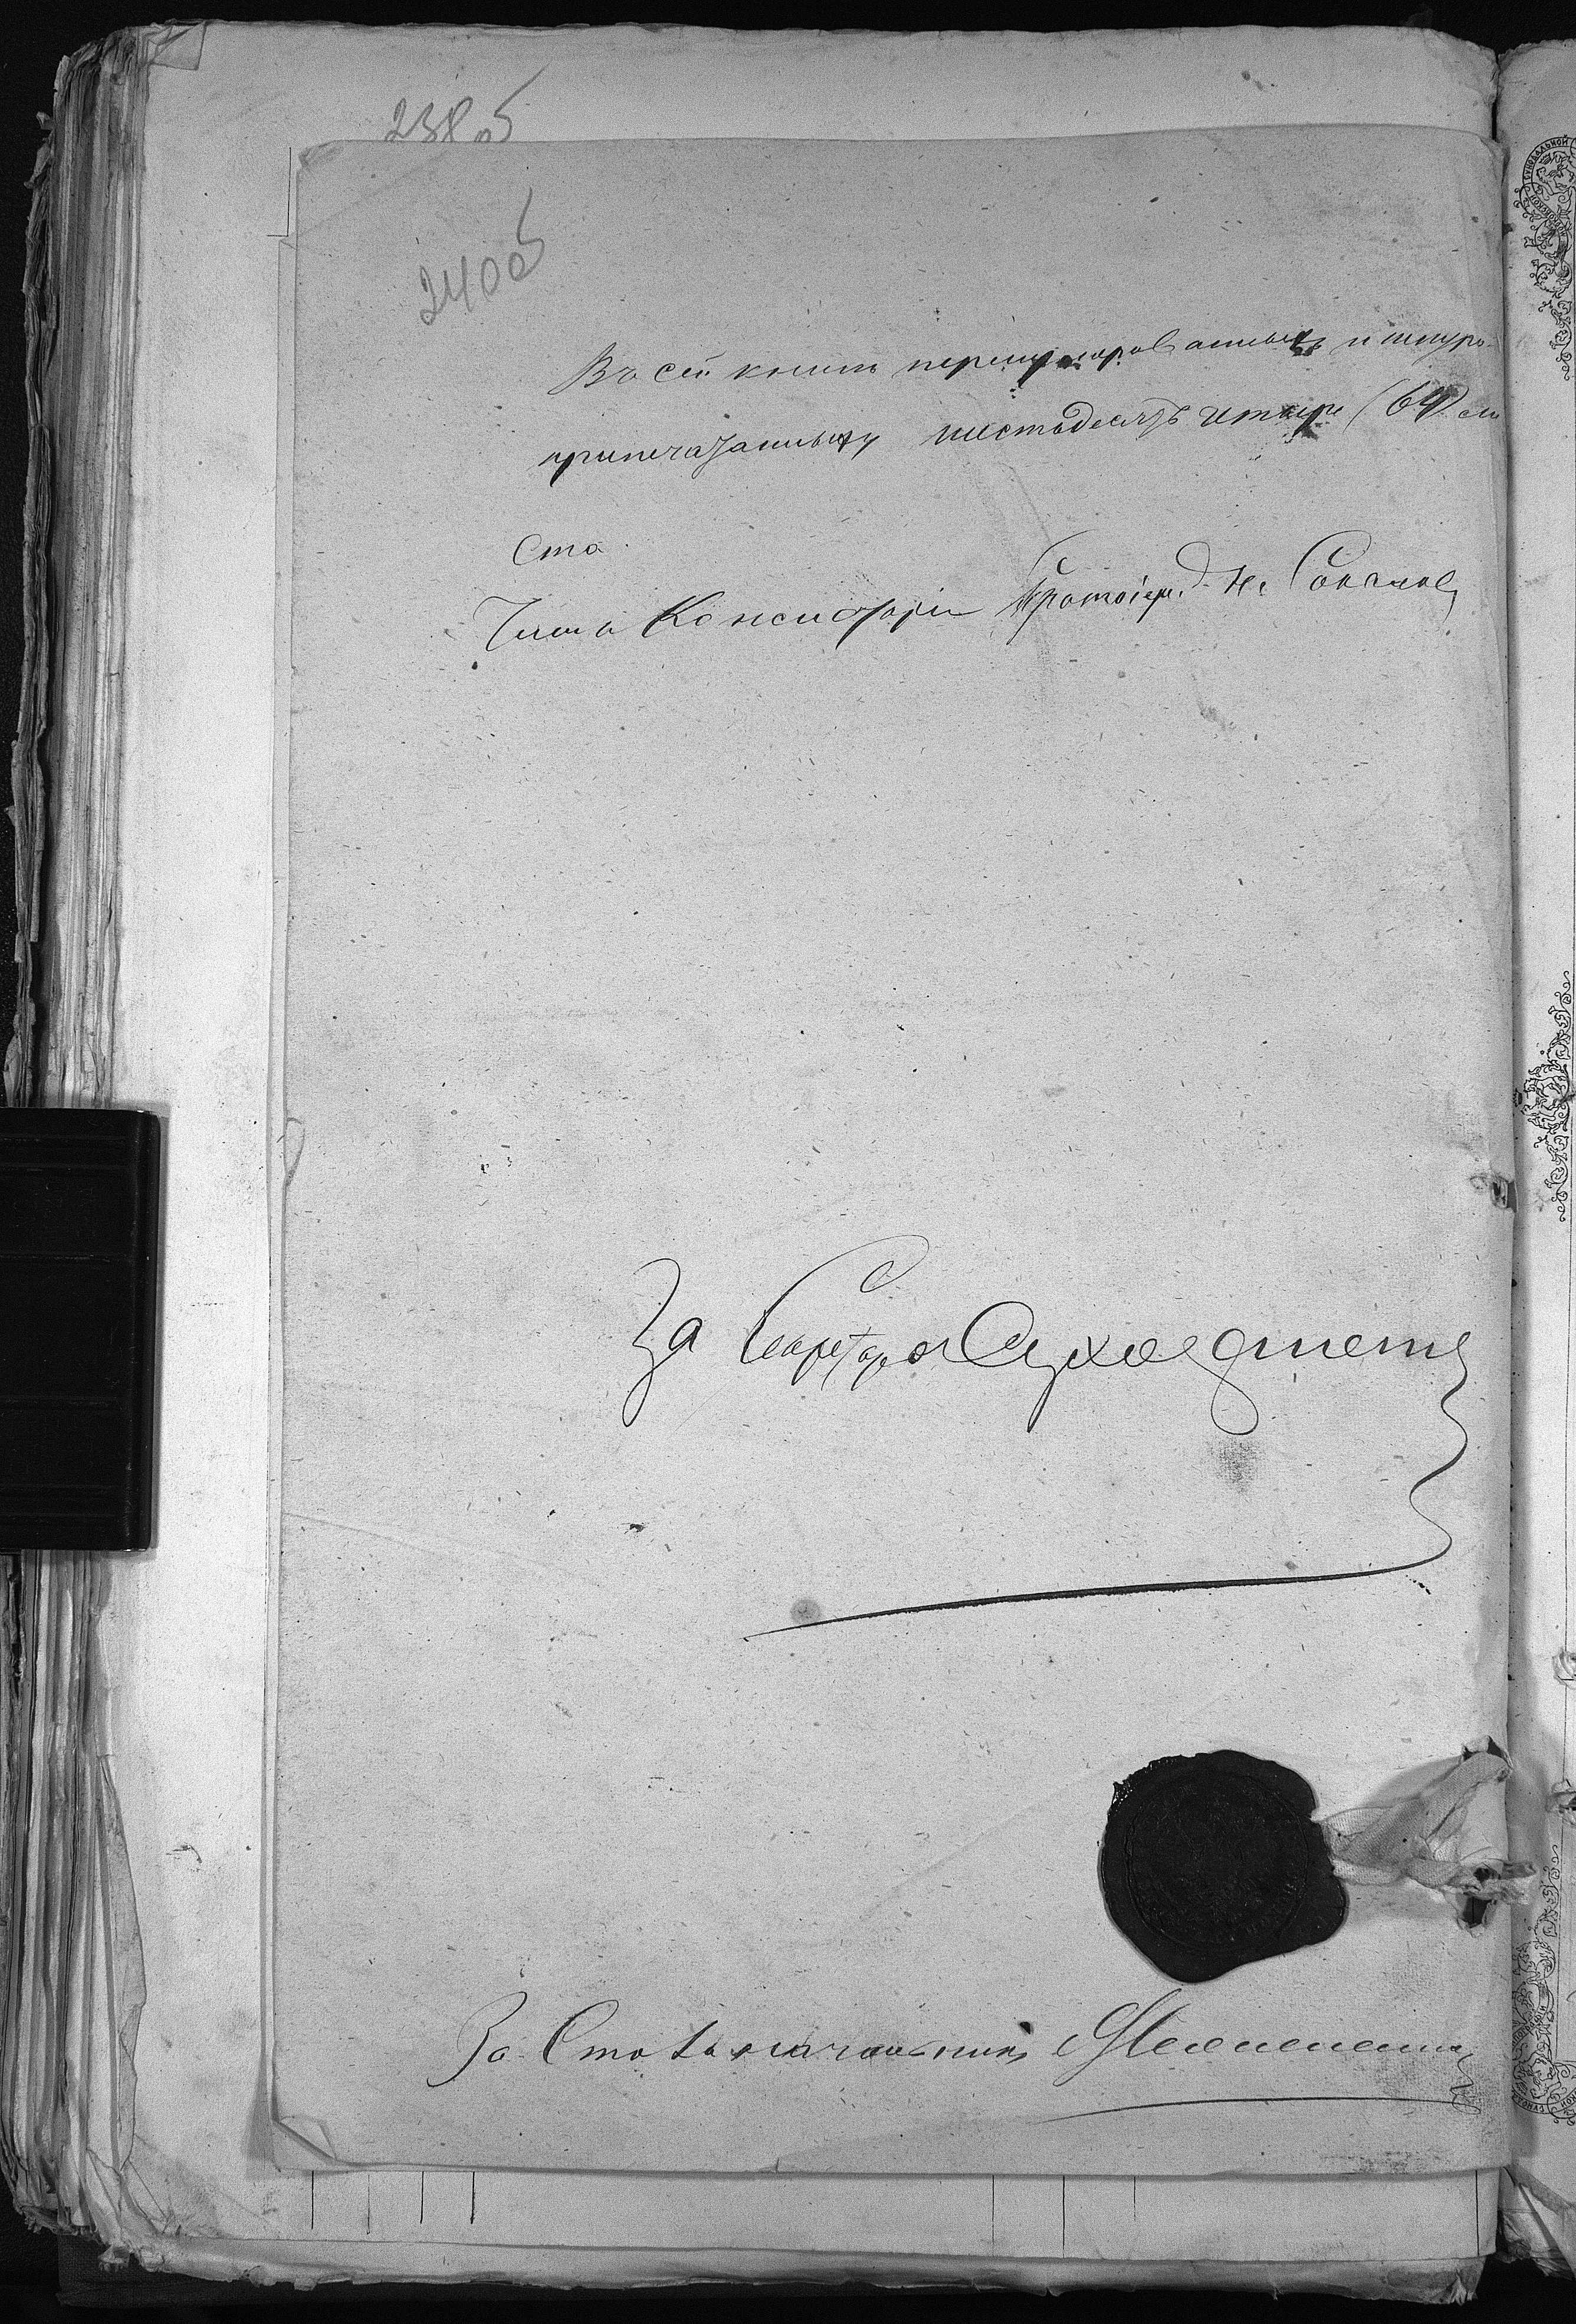 238об
240об
Въ сей книгѣ перенумерованныхъ и шнуро-
припечатанныхъ шестьдесятъ четыре (64) ли
ста.
Членъ Консисторіи Протоіер. Соколовъ
За Секретаря
За Столоначальника